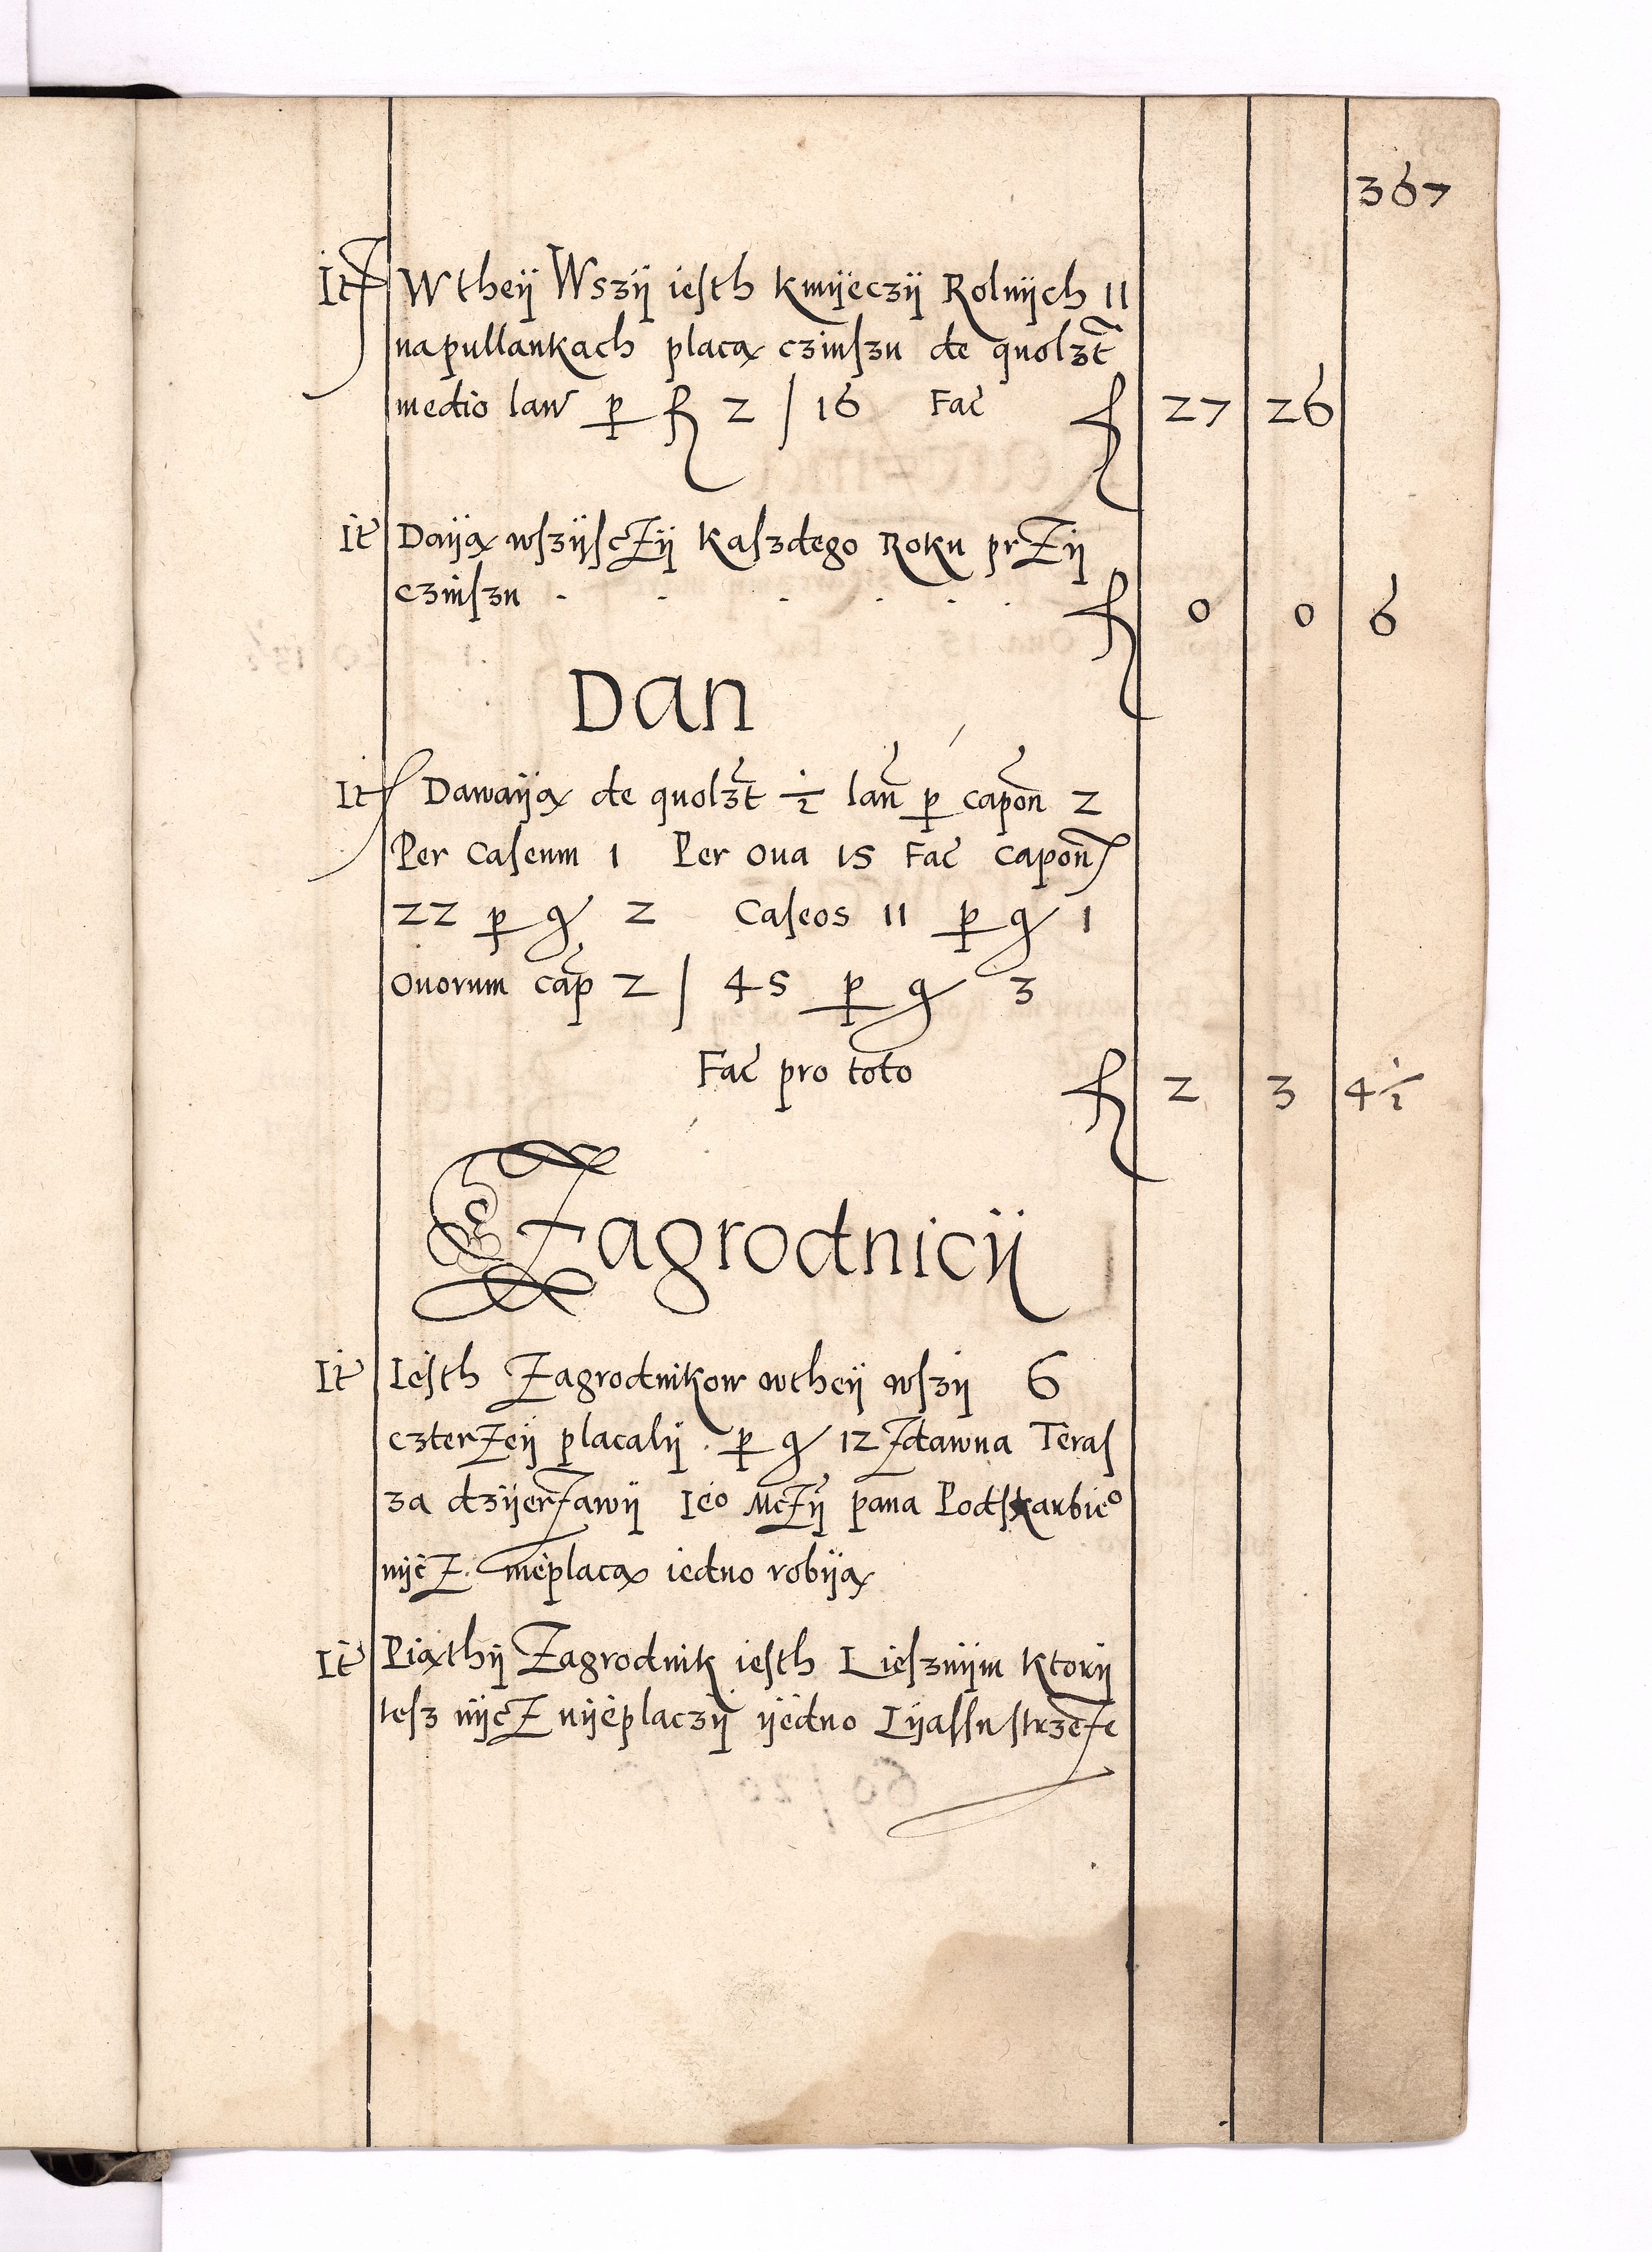 367
It W theÿ Wszÿ iesth kmÿeczÿ Rolnÿch 11
napullankach placą czinszu de quolzt
medio lan p fl 2 / 16 Fac fl 27 26
It Daÿą wszÿsczÿ kaszdego Roku przÿ
czinszu - - - - - - fl 0 0 6
Dan
It Dawaÿą de quolzt ½ lan p capon 2
Per Caseum 1 Per oua 15 Fac capon
22 p g 2 Caseos 11 p g 1
Ouorum cap 2 / 45 p g 3
Fac pro toto fl 2 3 4½
Zagrodnicÿ
It Iesth Zagrodnikow wtheÿ wszÿ 6
czterzeÿ placalÿ . p g 12 Zdawna Teras
za dzÿerzawÿ Ieo Mczÿ pana Podskarbieo
nÿcz nieplacą iedno robÿą
It Piąthÿ Zagrodnik iesth Liesznÿm ktorÿ
tesz nÿcz nÿeplaczÿ ÿedno Lÿassu strzeze